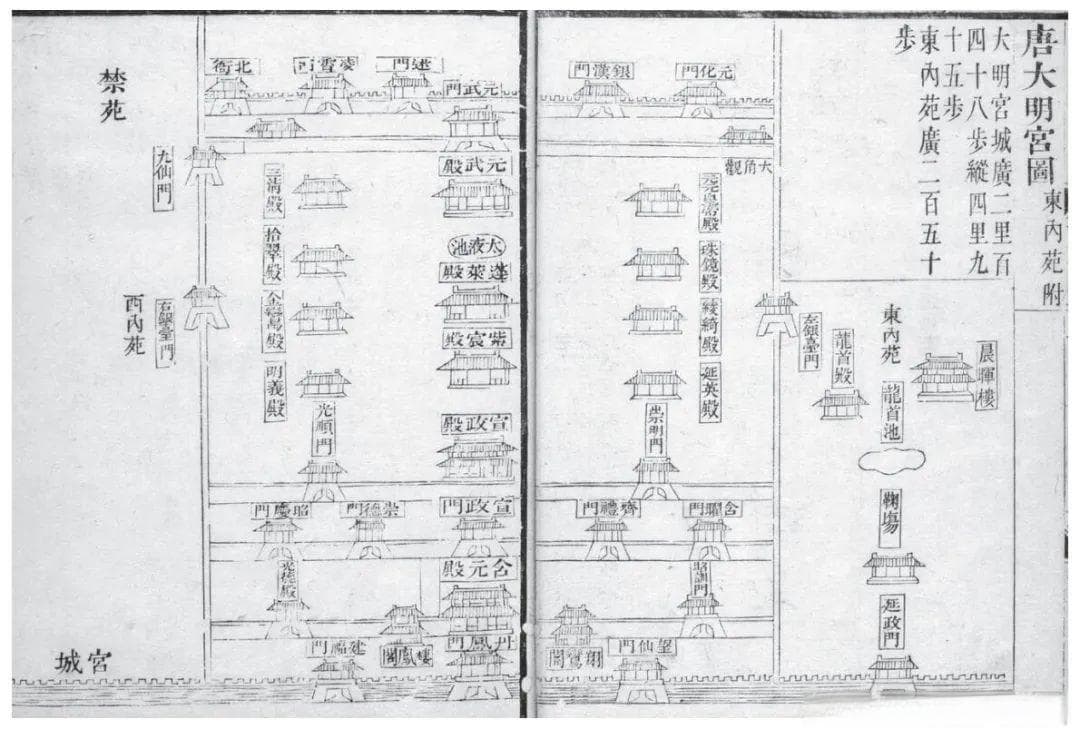 唐大明宮圖 東內苑附
大明宮城廣二里百
四十八步縱四里九
十五步
東內苑廣二百五十
步
晨暉樓
東內苑
龍首池
龍首殿
左銀臺門
鞠塲
延政門
元化門
銀漢門
大角觀
珠鏡殿
綾綺殿
延英殿
崇明門
含耀門
齊禮門
昭訓門
望仙門
翔鸞閣
元武門
凌霄門
北衙
元武殿
太液池
蓬萊殿
紫宸殿
宣政殿
宣政門
含元殿
丹鳳門
三清殿
拾翠殿
明義殿
光順門
崇德門
昭慶門
樓鳳閣
建福門
九仙門
右銀臺門
禁苑
西內苑
宮城